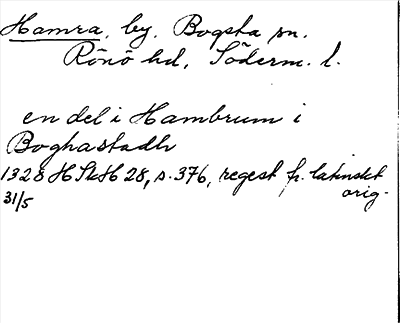 Hamra, by, Bogsta sn.
Rönö hd, Söderm. l.
en del i Hambrum i
Boghastadh
1328 HSkH 28, s. 376, regest fr. latinskt
31/5 orig.